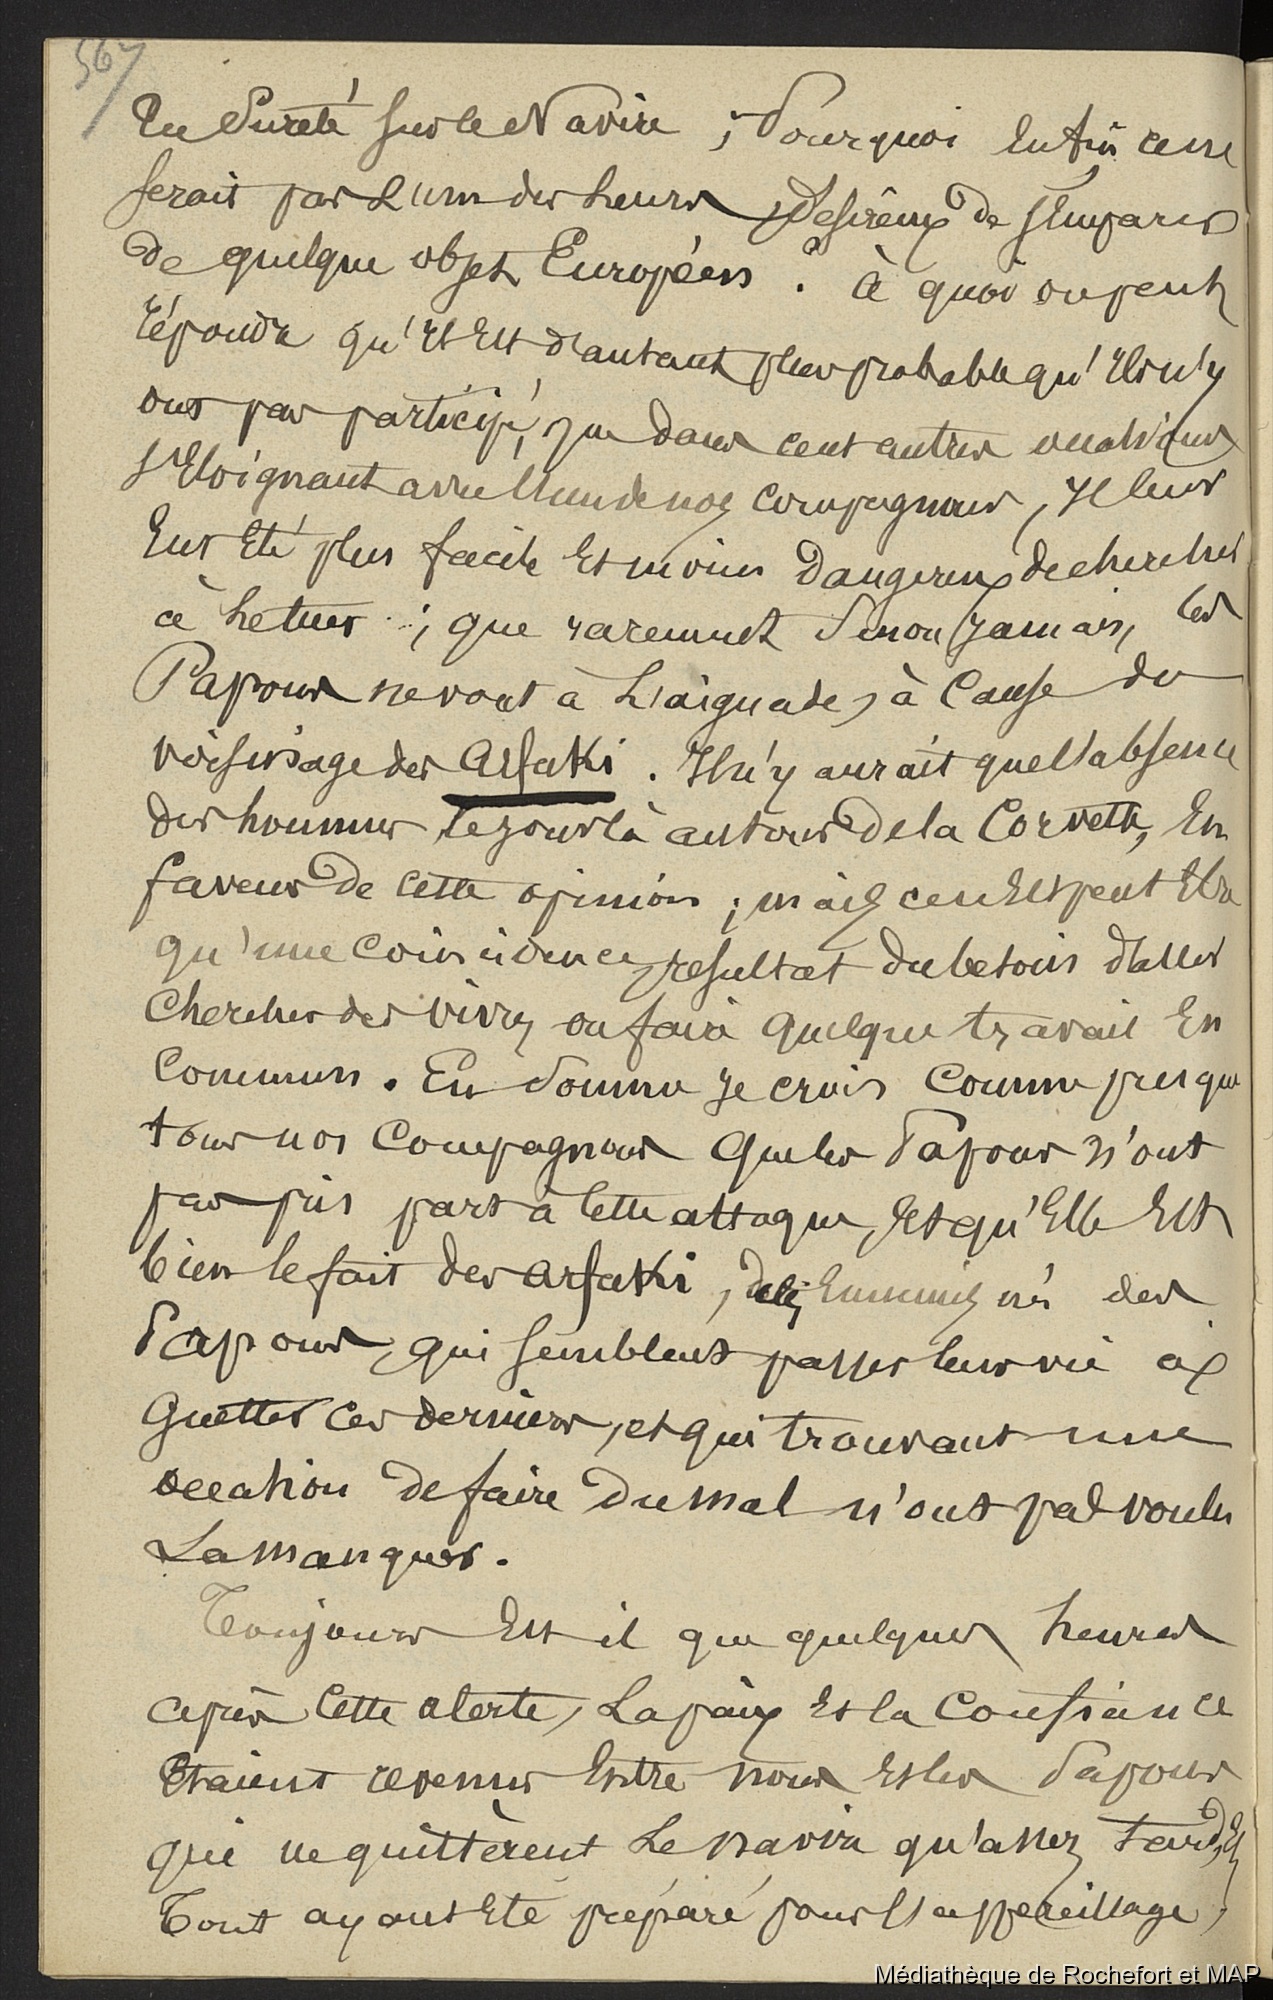 567
En Sureté sur le Navire ; Pourquoi Enfin ce ne
serait pas L'un des leurs, Desireux de s'Emparer
de quelque objet Européen. à quoi on peut
répondre qu'Il Est d'autant plus probable qu'Ils n'y
ont pas participé, que dans cent autres occasions
s'Eloignant avec l'un de nos Compagnons, Il leur
Eut Eté plus facile Et moins Dangereux de chercher
à le tuer ; que rarement Sinon Jamais, les
Papous ne vont à L'aiguade, à Cause du
voisinage des Arfaki. Il n'y aurait que l'absence
des hommes ce jour là autour de la Corvette, En
faveur de cette opinion ; mais ce n'Est peut Etre
qu'une Coincidence, resultat du besoin d'aller
Chercher des vivres ou faire quelque travail En
Commun. En Somme Je crois Comme presque
tous nos Compagnons Que les Papous N'ont
pas pris part à Cette attaque, Et qu'Elle Est
bien le fait des Arfaki, Ennemis nés des
Papous, qui semblent passer leur vie à
Guetter ces derniers, et qui trouvant une
occasion de faire Du Mal n'ont pas voulu
La Manquer.
Toujours Est il que quelques heures
après Cette alerte, La paix Et la Confiance
Etaient revenus Entre nous Et les Papous
qui ne quittèrent Le navire qu'assez tard, Et
Tout ayant Eté préparé pour l'appareillage,
Médiathèque de Rochefort et MAP